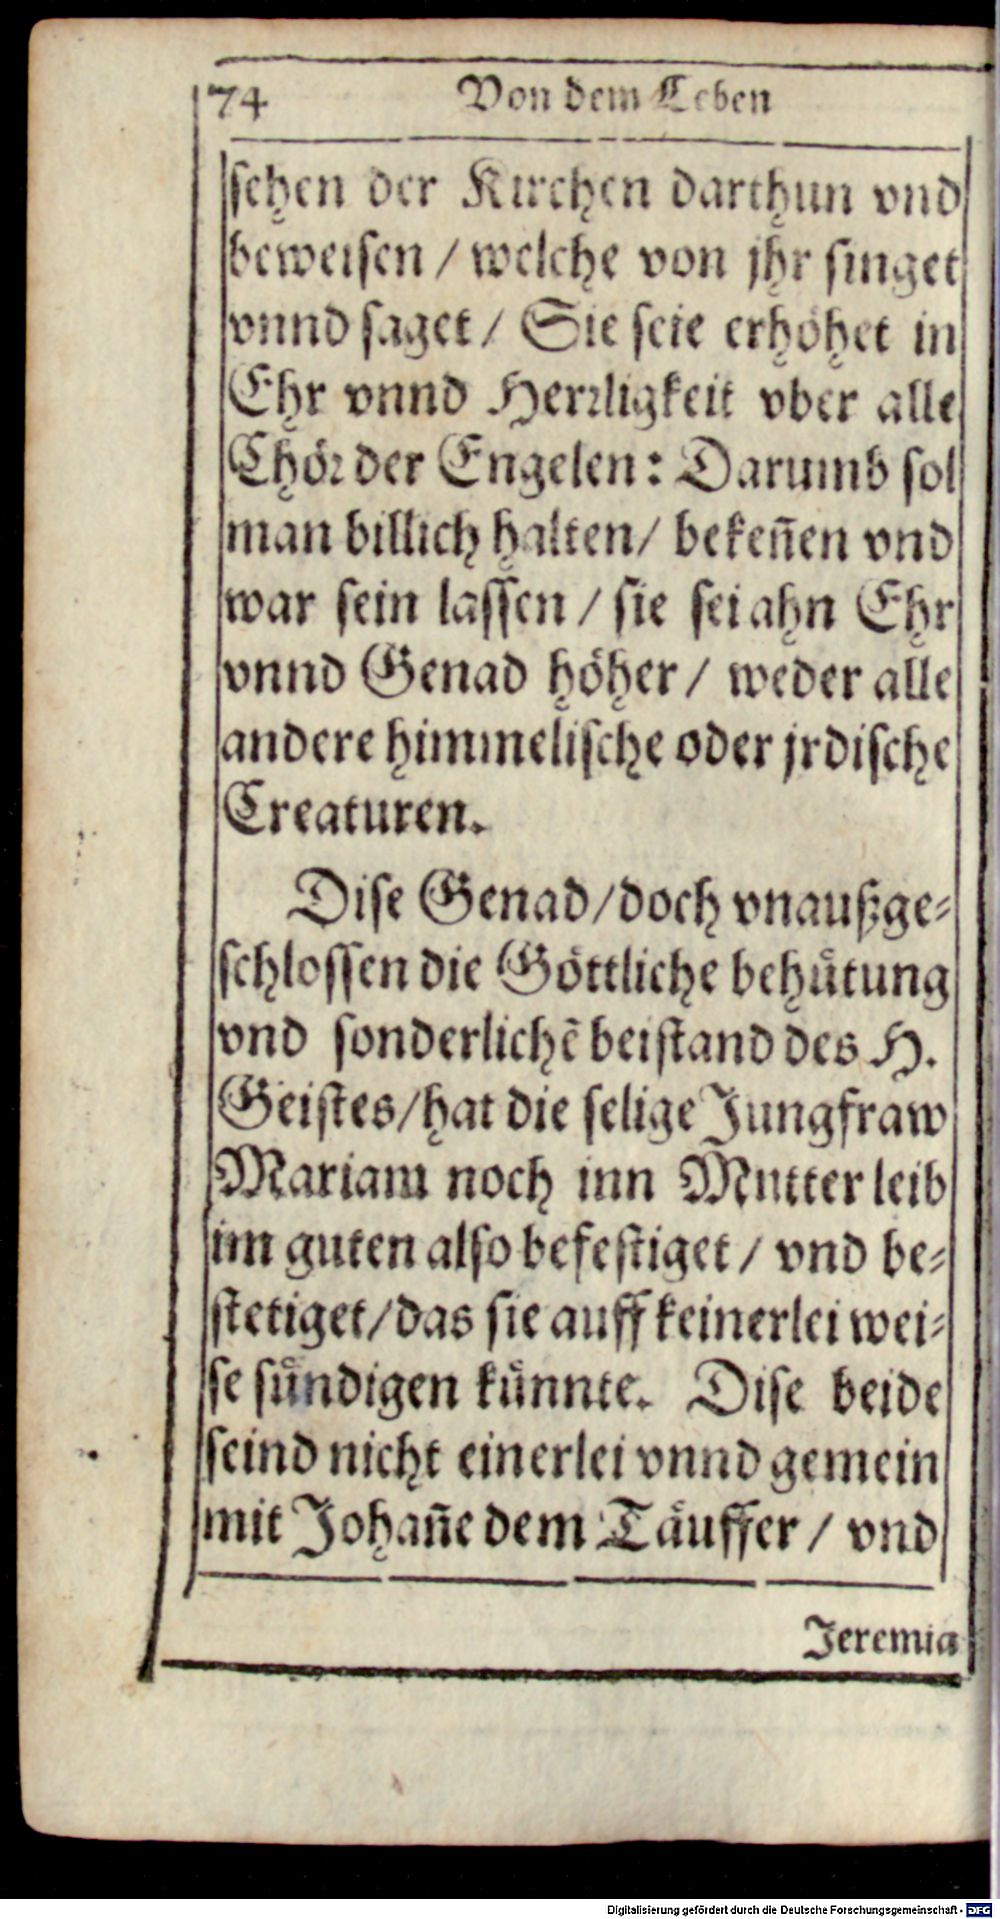 74 Von dem Leben
sehen der Kirchen darthun vnd
beweisen / welche von jhr singet
vnnd saget / Sie seie erhöhet in
Ehr vnnd Herrligkeit vber alle
Chör der Engelen: Darumb sol
man billich halten / bekeñen vnd
war sein lassen / sie sei ahn Ehr
vnnd Genad höher / weder alle
andere himmelische oder jrdische
Creaturen.
Dise Genad / doch vnaußge-
schlossen die Göttliche behütung
vnd sonderlichẽ beistand des H.
Geistes / hat die selige Jungfraw
Mariam noch inn Mutter leib
im guten also befestiget / vnd be-
stetiget / das sie auff keinerlei wei-
se sündigen künnte. Dise beide
seind nicht einerlei vnnd gemein
mit Johañe dem Täuffer / vnd
Jeremia
Digitalisierung gefördert durch die Deutsche Forschungsgemeinschaft - DFG